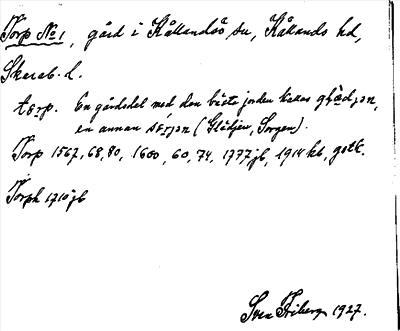 Torp No 1, gård i Kållandsö sn, Kållands hd,
Skarab. l.
tɔrp. En gårdsdel med den bästa jorden kallas
en annan sɔrjən (Glädjen, Sorgen).
Torp 1567, 68, 80, 1600, 60, 74, 1777 jb, 1914 kb, godk.
Torph 1710 jb
Sven Friberg 1927.